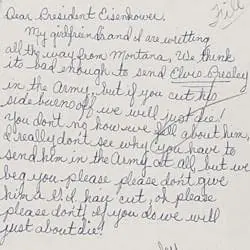 Dear President Eisenhower,
My girlfriend and I are writting
all the way from Montana, We think
its bad enough to send Elvis Presley
in the Army, but if you cut his
side burns off we will just die!
You don't no how we fell about him,
I really don't see why you have to
send him in the Army at all, but we
beg you please please don't give
him a G.I. hair cut, oh please
please don't! If you do we will
just about die!